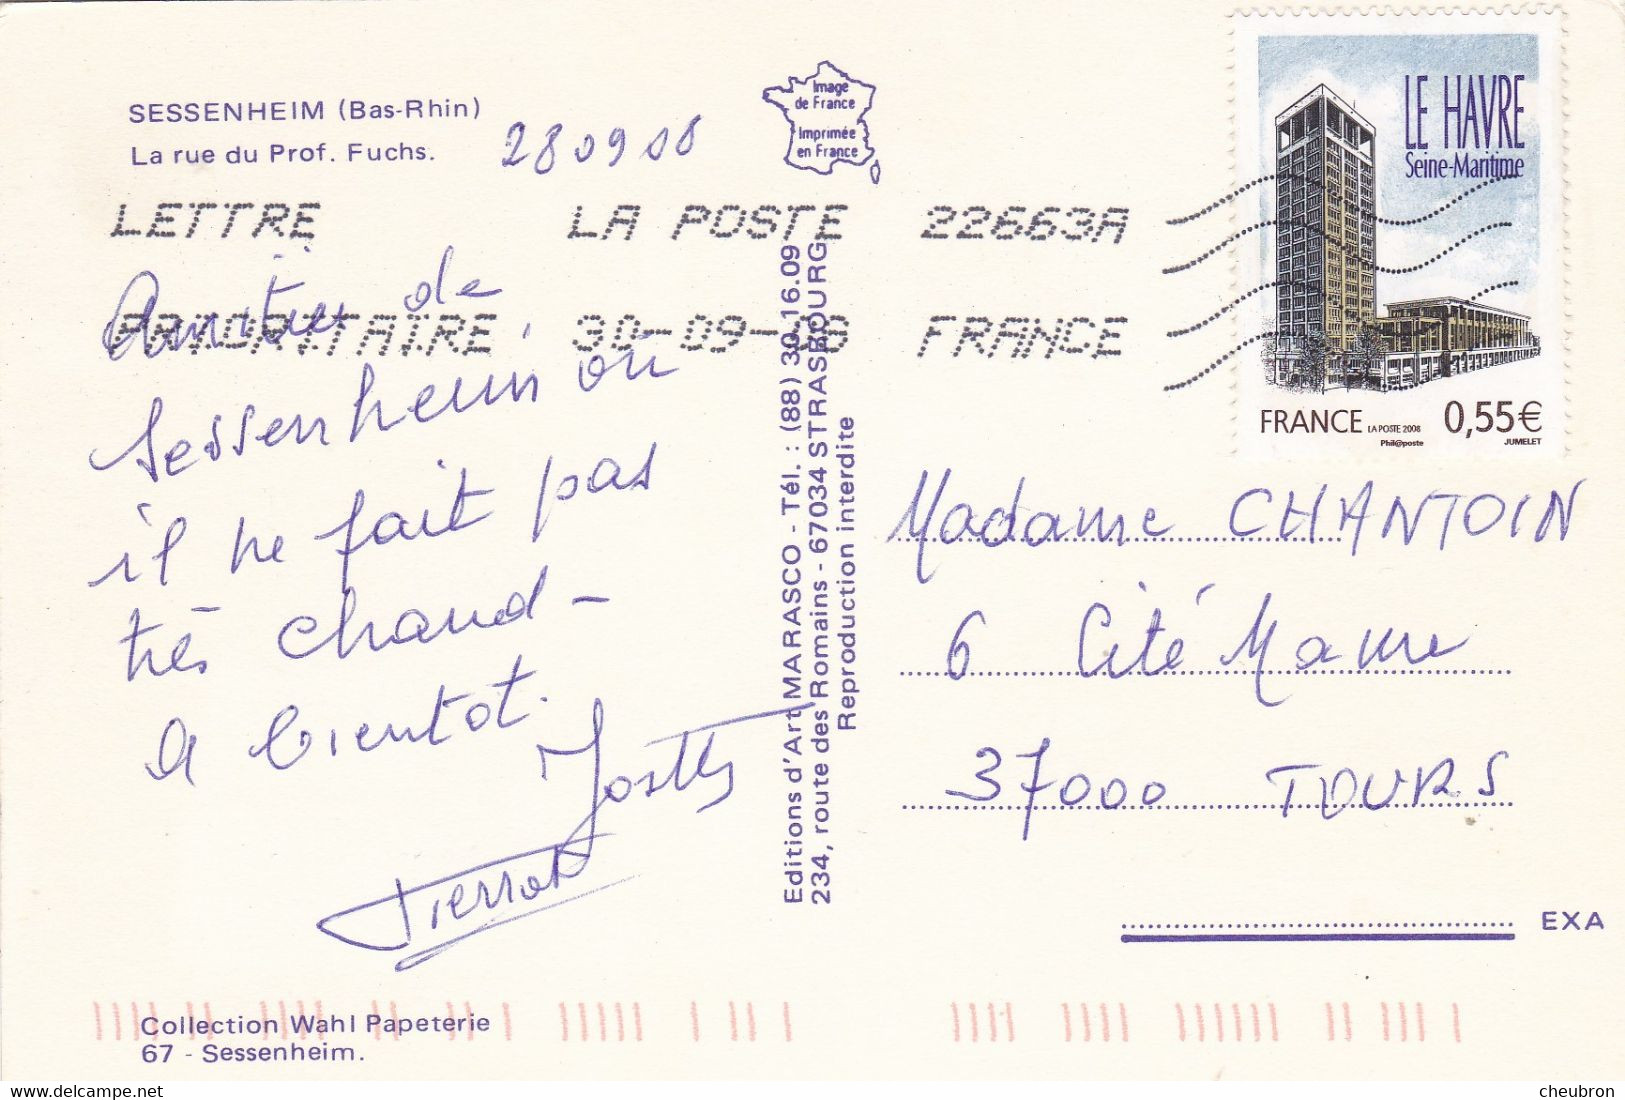 SESSENHEIM (Bas-Rhin)
La rue du Prof. Fuchs.
28 09 08
Image
de France
Imprimée
en France
LETTRE LA POSTE 22663A
PRIORITAIRE 30-09-08 FRANCE
LE HAVRE
Seine-Maritime
FRANCE LA POSTE 2008 0,55€
Phil@poste JUMELET
Amitiés de
Sessenheim où
il ne fait pas
très chaud -
A bientôt.
Pierrot
Editions d'Art MARASCO - Tél. : (88) 30.16.09
234, route des Romains - 67034 STRASBOURG
Reproduction interdite
Madame CHANTOIN
6 Cité Mame
37000 TOURS
EXA
Collection Wahl Papeterie
67 - Sessenheim.
www.delcampe.net
cheubron